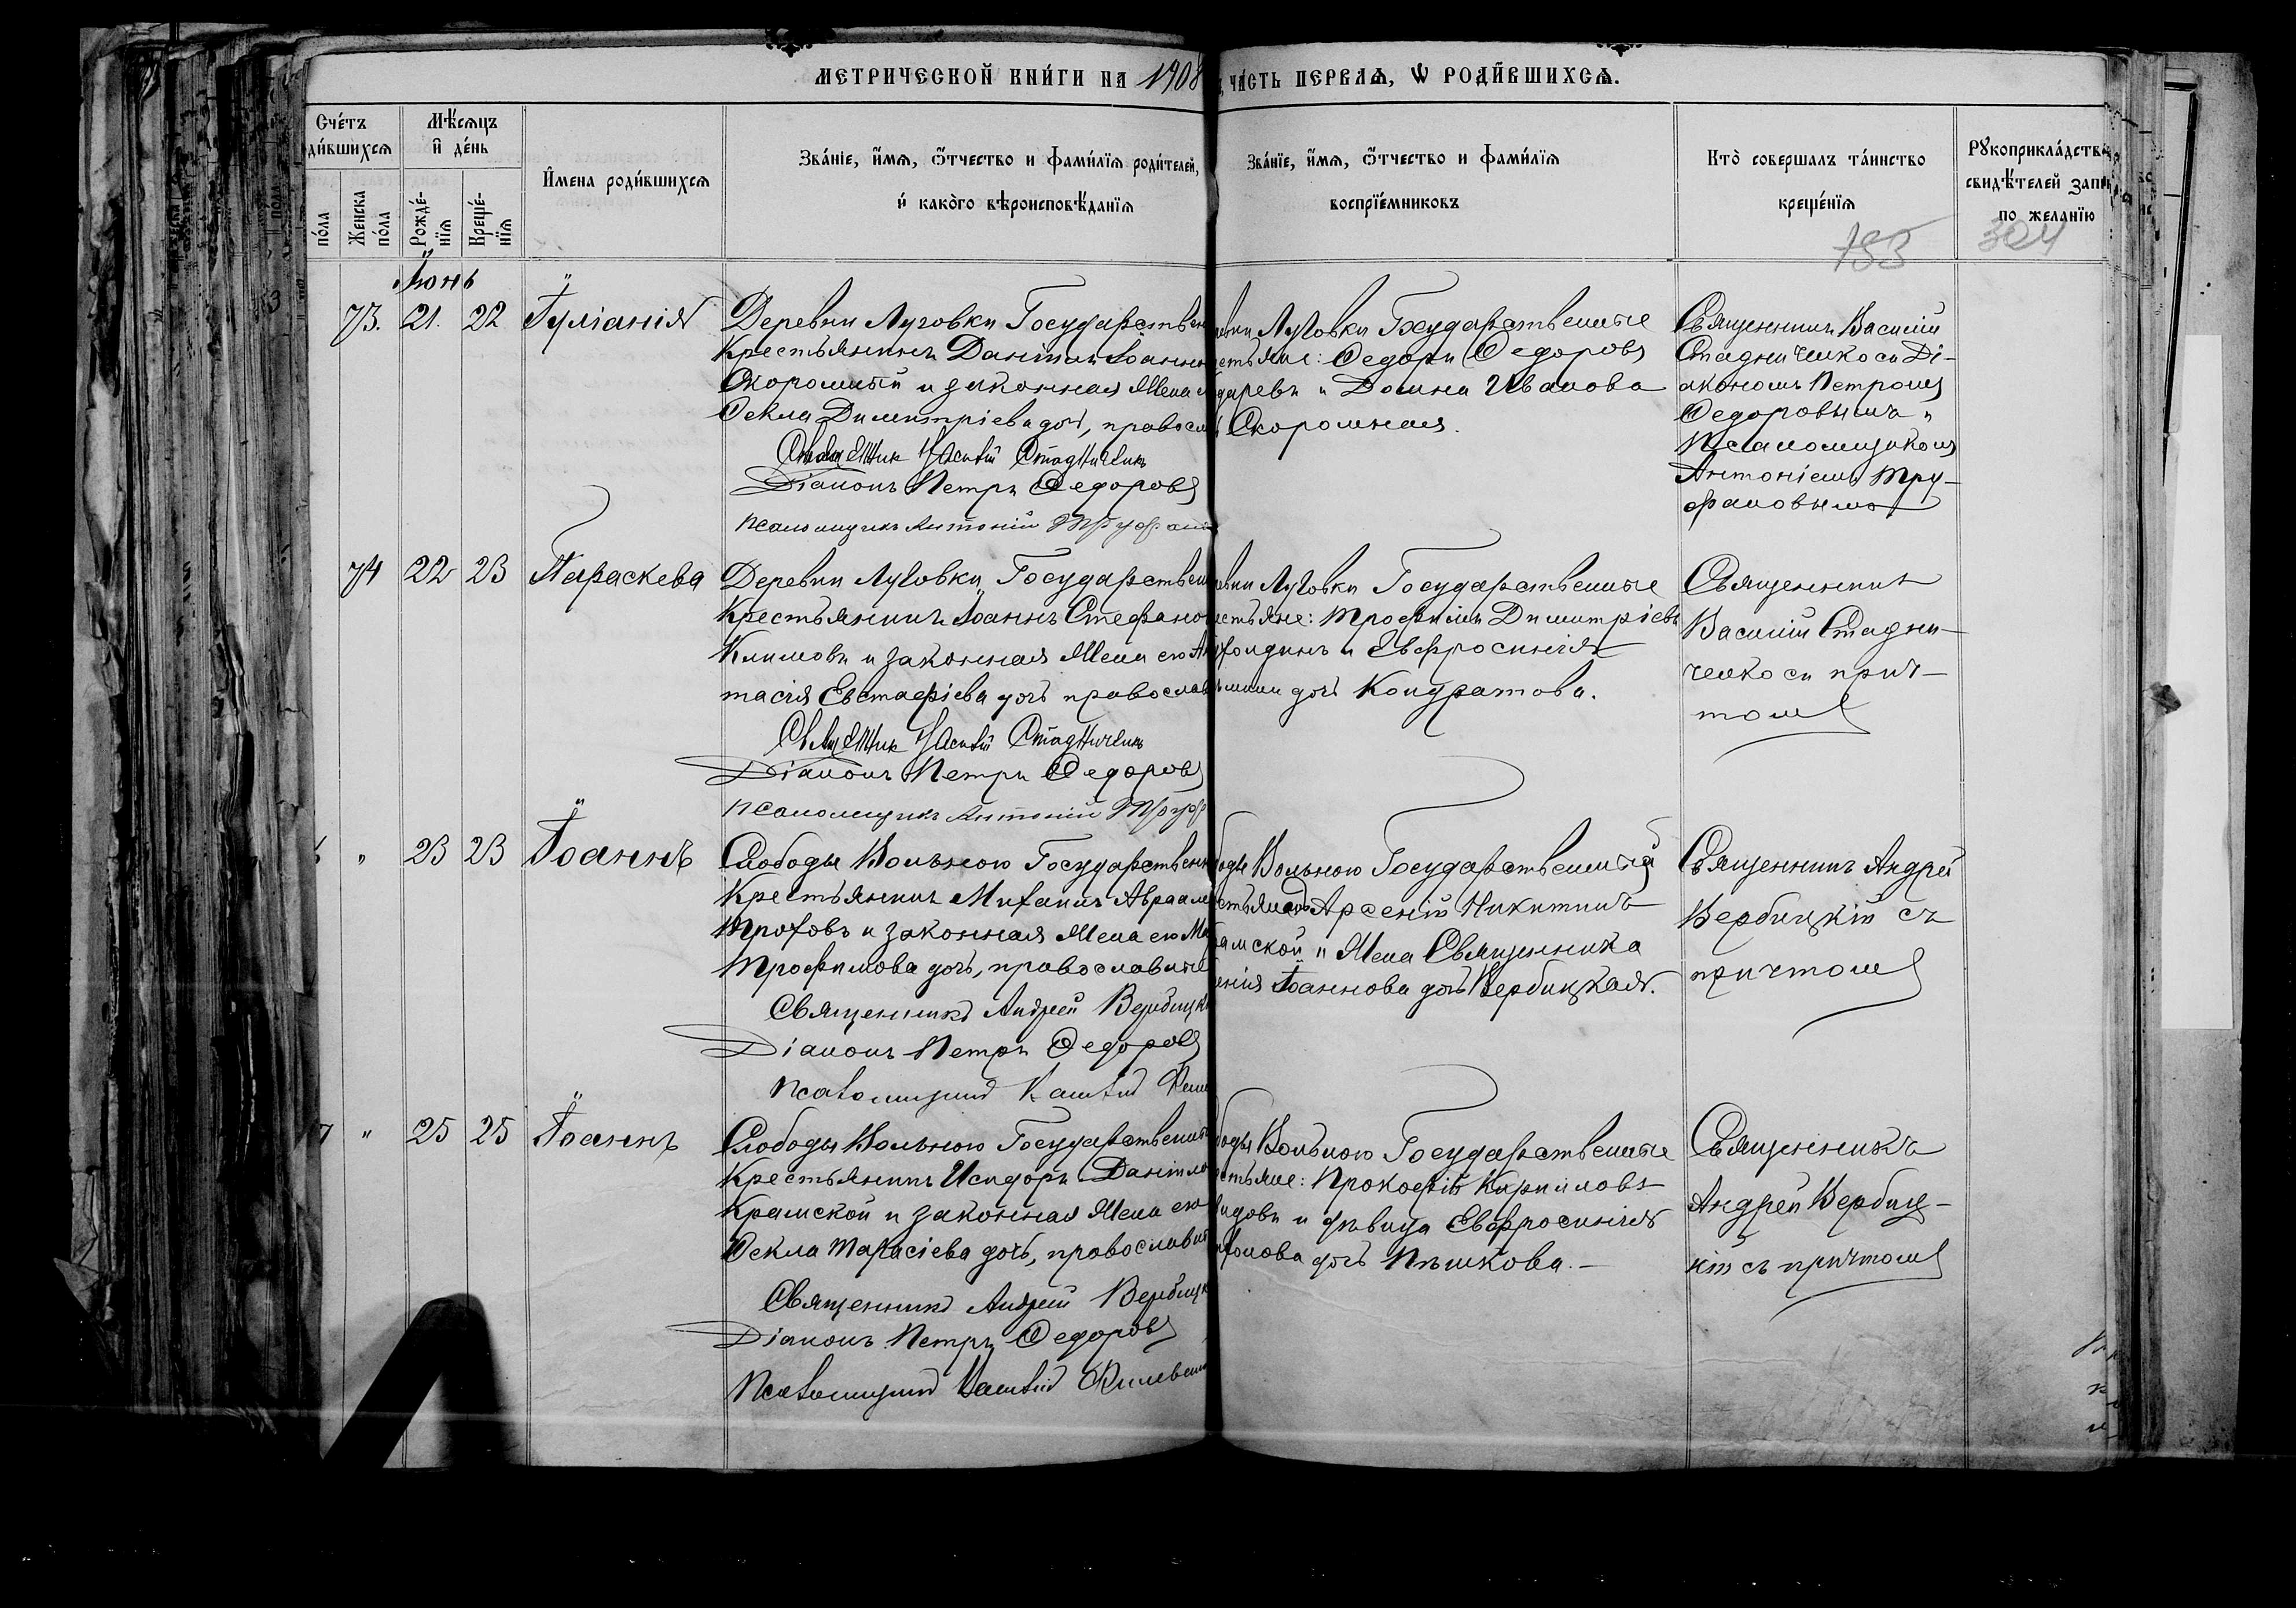 МЕТРИЧЕСКОЙ КНИ́ГИ НА 1908
ЧА́СТЬ ПЕРВАѦ, Ѡ РОДИ́ВШИХСѦ.
Сче́тъ
ди́вшихсѧ
Мѣ́сѧцъ
и де́нь
И҆мена роди́вшихсѧ
Зва́нїе, и҆́мѧ, ѻ҆́тчество и фами́лїѧ роди́телей,
и како́го вѣроисповѣ́данїѧ
Зва́нїе, и҆́мѧ, ѻ҆́тчество и фами́лїѧ
воспрїе́мниковъ
Кто̀ совершалъ та́инство
креще́нїѧ
Рꙋкоприкла́дств
свидѣ́телей запи
по желанїю
по́ла
Женска
по́ла
Рожде́-
нїѧ
Креще́-
нїѧ
304
Іюнь
73. 21. 22 Іуліанія
Деревни Луговки Государствен
Крестьянинъ Даніилъ Іоанно
Скоромный и законная жена
Ѳекла Димитріева дочь, правосл
Священник Василій Стадниченко
Діаконъ Петръ Ѳедоровъ
Псаломщикъ Антоній Труфан
евни Луговки Государственные
естьяне: Ѳедоръ Ѳедоровъ
даревъ и Домна Иванова
Скоромная.
Священникъ Василій
Стадниченко съ Ді-
акономъ Петромъ
Ѳедоровымъ и
Псаломщикомъ
Антоніемъ Тру-
фановымъ
74 22 23 Параскева
Деревни Луговки Государствен
Крестьянинъ Іоаннъ Стефано
Климовъ и законная жена его Ан
тасія Евстафіева дочь православ
Священник Василій Стадниченко
Діаконъ Петръ Ѳедоровъ
Псаломщикъ Антоній Труф
евни Луговки Государственные
естьяне: Трофимъ Димитріевъ
и Евфросинія
дочь Кондратова.
Священникъ
Василій Стадни-
ченко съ прич-
томъ
" 23 23 Іоаннъ
Слободы Вольною Государствен
Крестьянинъ Михаилъ Авраам
Трохов и законная жена его Ма
Трофимова дочь, православные
Священникъ Андрей Вербицк
Діаконъ Петръ Ѳедоровъ
Псаломщикъ
оды Вольною Государственный
естьянинъ Арсеній Никитинъ
рамской и жена Священника
енія Іоаннова дочь Вербицкая.
Священникъ Андрей
Вербицкій съ
причтомъ
7 " 25 25 Іоаннъ
Слободы Вольною Государственн
Крестьянинъ Исидоръ Даніило
Крамской и законная жена его
Ѳекла Тарасіева дочь, православн
Священникъ Андрей Вербицк
Діаконъ Петръ Ѳедоровъ
Псаломщикъ
боды Вольною Государственные
естьяне: Прокофій Кирилловъ
идовъ и дѣвица Евфросинія
дочь Пѣшкова.-
Священникъ
Андрей Вербиц-
кій съ причтомъ